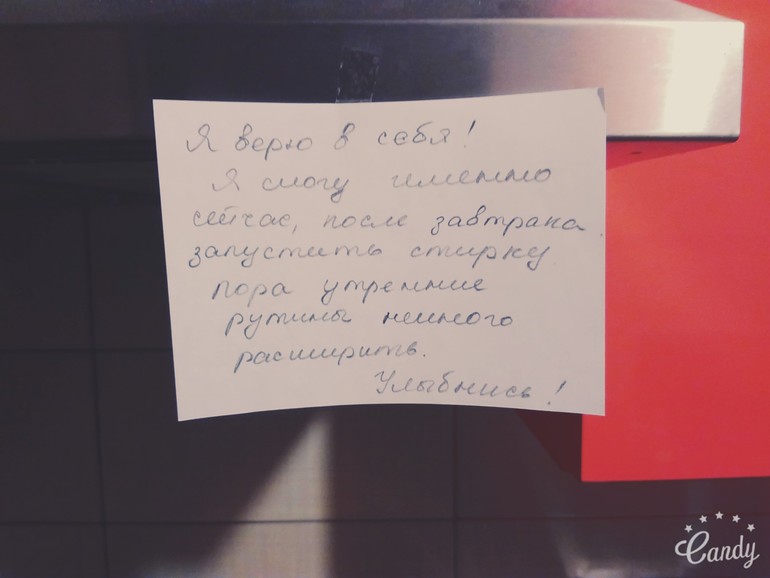 Я верю в себя!
Я смогу именно
сейчас, после завтрака
запустить стирку
пора утренние
рутины немного
расширить.
Улыбнись!
Candy